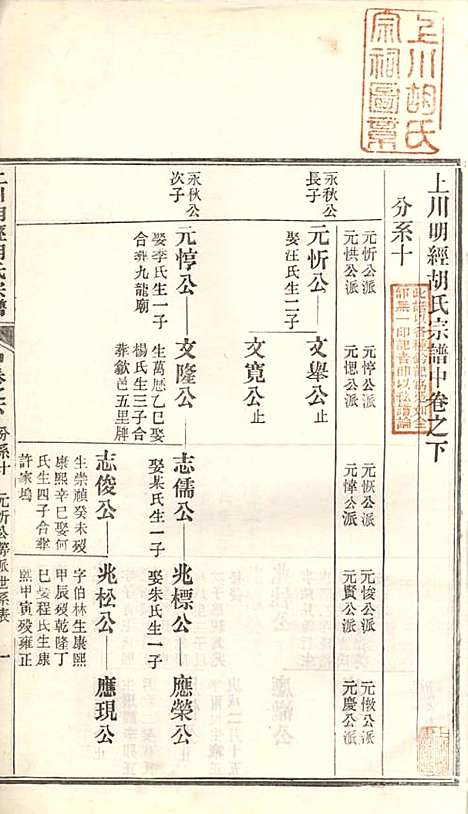 上川胡氏
宗祠圖票
上川明經胡氏宗譜中卷之下
分系十
元忻公派
元悙公派
元恢公派
元悛公派
元慠公派
元恭公派
元偲公派
元愇公派
元賓公派
元慶公派
永秋公
長子
元忻公
娶汪氏生二子
文舉公止
文寬公止
永秋公
次子
元悙公
娶李氏生一子
合葬九龍廟
文隆公
生萬厯乙巳娶
楊氏生三子合
葬歙邑五里牌
志儒公
娶某氏生一子
兆標公
娶朱氏生一子
應榮公止
志俊公
生崇禎癸未歿
康熙辛巳娶何
氏生四子合葬
許家塢
兆松公
字伯林生康熙
甲辰歿乾隆丁
巳娶程氏生康
熙甲寅歿雍正
應現公止
上川明經胡氏宗譜
中卷之下
分系十
元忻公等派世系表
一